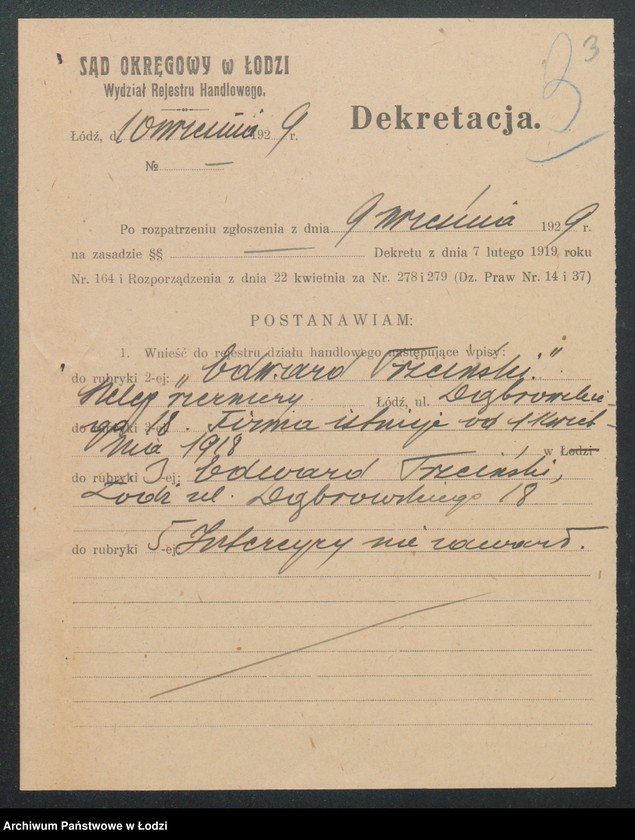 3
SĄD OKRĘGOWY w ŁODZI
Wydział Rejestru Handlowego.
Dekretacja.
3
Łódź, d. 10 wrześnią 1929 r.
№ —
Po rozpatrzeniu zgłoszenia z dnia 9 wrześnią 1929 r.
na zasadzie §§ — Dekretu z dnia 7 lutego 1919 roku
Nr. 164 i Rozporządzenia z dnia 22 kwietnia za Nr. 278 i 279 (Dz. Praw Nr. 14 i 37)
POSTANAWIAM:
1. Wnieść do rejestru działu handlowego następujące wpisy:
do rubryki 2-ej: „Edward Trzciński."
Sklep Łódź, ul. Dąbrowskie-
do rubryki 2-ej: go 18. Firma istnieje od 1 kwiet-
nia 1918 w Łodzi
do rubryki 3-ej: Edward Trzciński,
Łódź ul. Dąbrowskiego 18
do rubryki 5-ej: Intercyzy nie zawarł.
Archiwum Państwowe w Łodzi